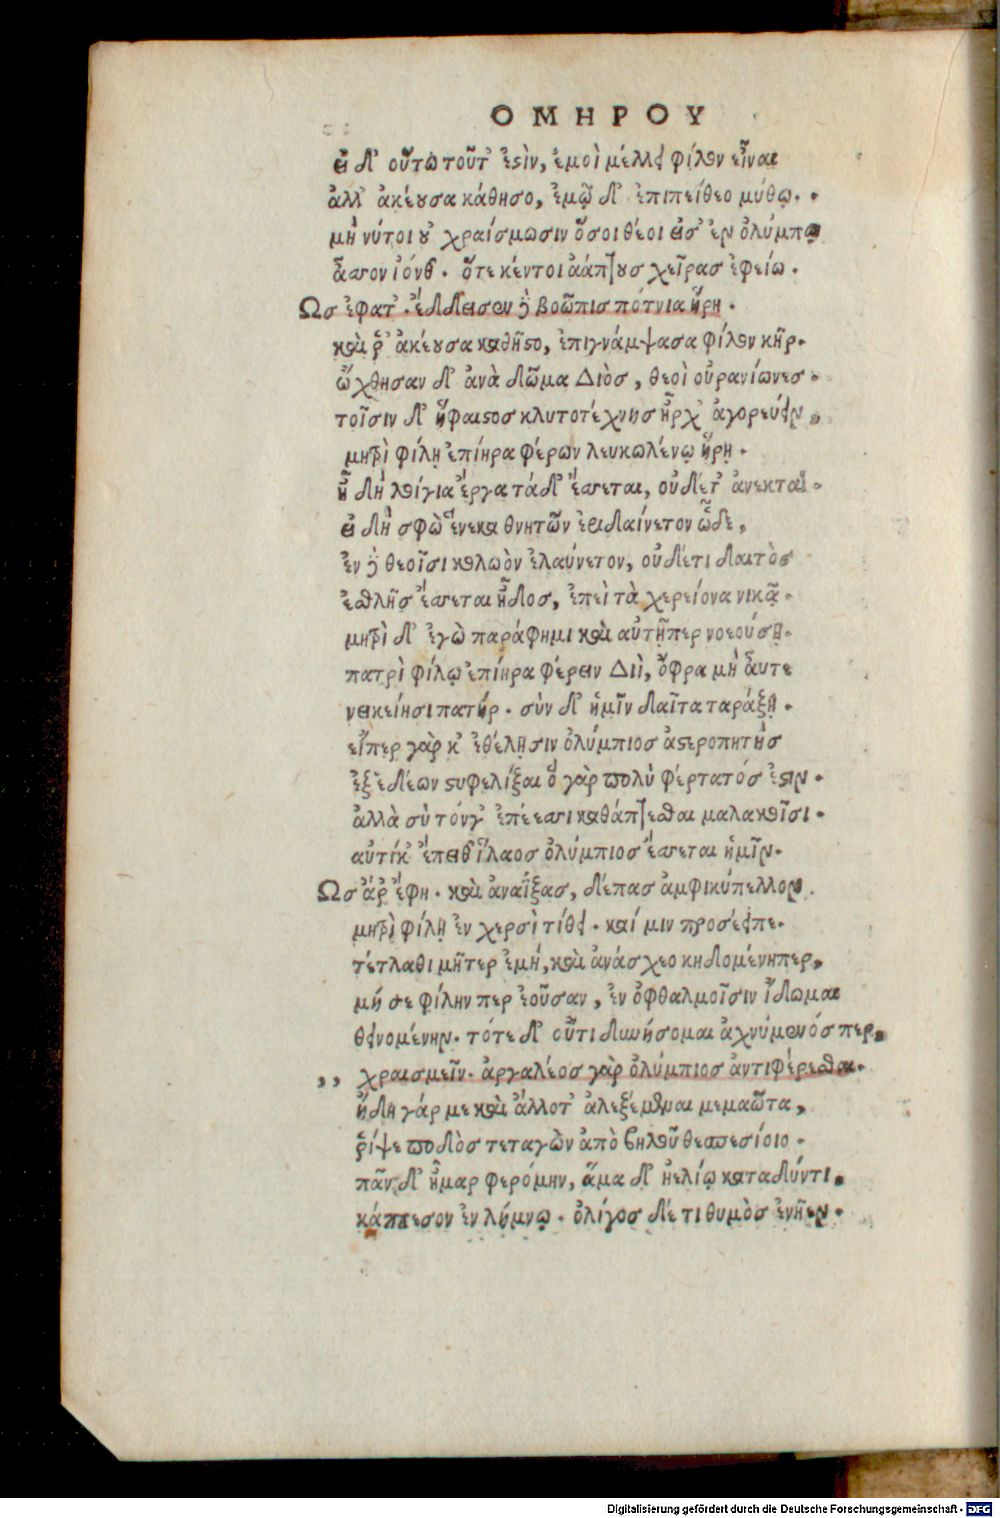 ΟΜΗΡΟΥ
εἰ δ' οὕτω τοῦτ' ἐστὶν, ἐμοὶ μέλλει φίλον εἶναι
ἀλλ' ἀκέουσα κάθησο, ἐμῷ δ' ἐπιπείθεο μύθῳ.
μή νύτοι οὐ χραίσμωσιν ὅσοι θέοι εἰσ' ἐν ὀλύμπῳ
ἆσσον ἰόνθ'. ὅτε κέντοι ἀάπτους χεῖρας ἐφείω.
Ως ἐφατ'. ἔδδεισεν δὲ βοῶπις πότνια ἥρη.
καὶ ῥ' ἀκέουσα καθῆστο, ἐπιγνάμψασα φίλον κῆρ.
ὤχθησαν δ' ἀνὰ δῶμα Διὸς, θεοὶ οὐρανίωνες.
τοῖσιν δ' ἥφαιστος κλυτοτέχνης ἦρχ' ἀγορεύειν,
μητρὶ φίλῃ ἐπίηρα φέρων λευκωλένῳ ἥρῃ.
ἦ δὴ λοίγια ἔργα τά δ' ἔσσεται, οὐδέτ' ἀνεκτά.
εἰ δὴ σφὼ ἕνεκα θνητῶν ἐριδαίνετον ὧδε,
ἐν δὲ θεοῖσι κολωὸν ἐλαύνετον, οὐδέτι δαιτὸς
ἐσθλῆς ἔσσεται ἦδος, ἐπεὶ τὰ χερείονα νικᾷ.
μητρὶ δ' ἐγὼ παράφημι καὶ αὐτῇπερ νοεούσῃ.
πατρὶ φίλῳ ἐπίηρα φέρειν Διῒ, ὄφρα μὴ αὖτε
νεικείησι πατήρ. σὺν δ' ἡμῖν δαῖτα ταράξῃ.
εἴπερ γὰρ κ' ἐθέλῃσιν ὀλύμπιος ἀστεροπητής
ἐξ ἑδέων στυφελίξαι ὁ γὰρ πολὺ φέρτατός ἐστιν.
ἀλλὰ σὺ τόνγ' ἐπέεσσι καθάπτεσθαι μαλακοῖσι.
αὐτίκ' ἔπειθ' ἵλαος ὀλύμπιος ἔσσεται ἡμῖν.
Ως ἄρ' ἔφη. καὶ ἀναΐξας, δέπας ἀμφικύπελλον
μητρὶ φίλῃ ἐν χερσὶ τίθει. καί μιν προσέειπε.
τέτλαθι μῆτερ ἐμή, καὶ ἀνάσχεο κηδομένηπερ,
μή σε φίλην περ ἐοῦσαν, ἐν ὀφθαλμοῖσιν ἴδωμαι
θεινομένην. τότε δ' οὔτι δυνήσομαι ἀχνύμενός περ,
,, χραισμεῖν. ἀργαλέος γὰρ ὀλύμπιος ἀντιφέρεσθαι.
ἤδη γάρ με καὶ ἄλλοτ' ἀλεξέμεναι μεμαῶτα,
ῥίψε ποδὸς τεταγὼν ἀπὸ βηλοῦ θεσπεσίοιο.
πᾶν δ' ἦμαρ φερόμην, ἅμα δ' ἠελίῳ καταδύντι,
κάππεσον ἐν λήμνῳ. ὀλίγος δέ τι θυμὸς ἐνῆεν.
Digitalisierung gefördert durch die Deutsche Forschungsgemeinschaft - DFG